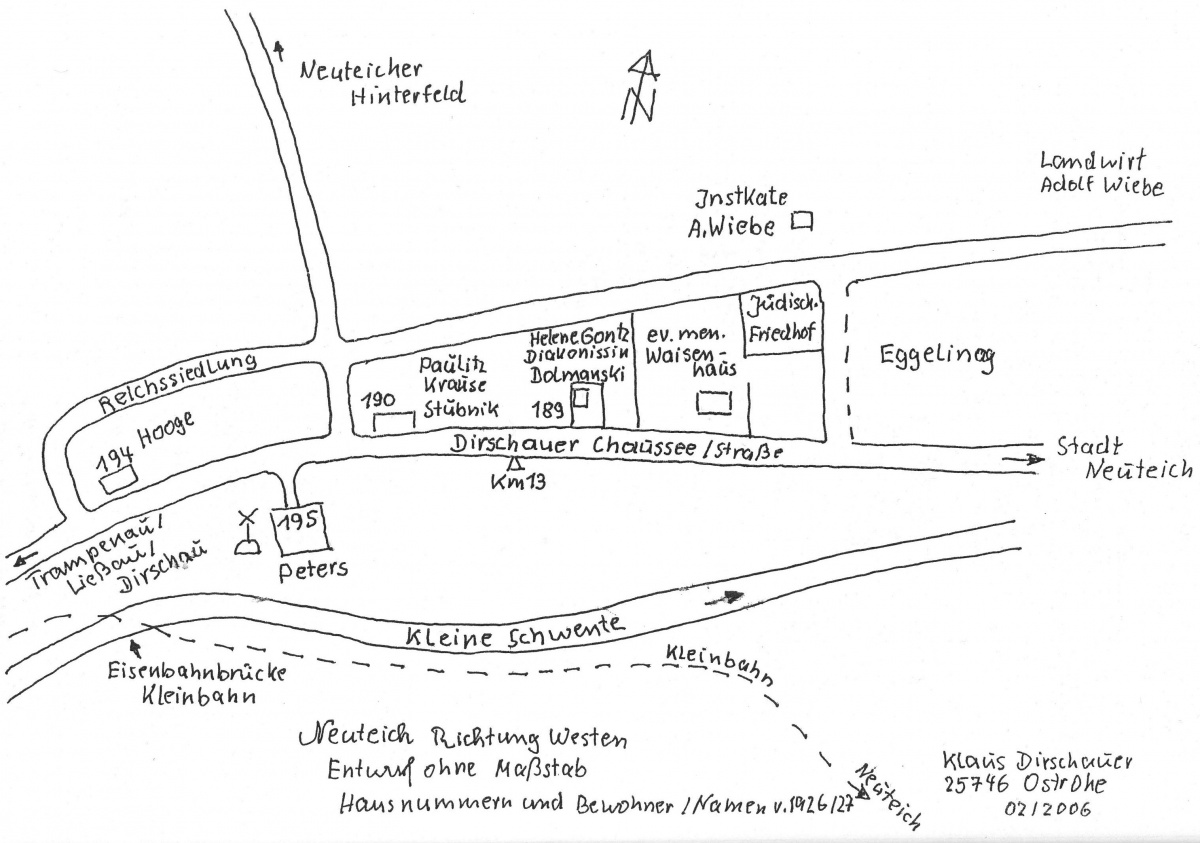 Neuteicher
Hinterfeld
N
Landwirt
Adolf Wiebe
Instkate
A.Wiebe
Jüdisch.
Friedhof
ev. men.
Waisen-
haus
Helene Gontz
Diakonissin
Dolmanski
189
Paulitz
Krause
Stübnik
190
Eggelinag
Reichssiedlung
Hooge
194
Dirschauer Chaussee/Straße
Km13
Stadt
Neuteich
195
Peters
Trampenau/
Ließau/
Dirschau
Kleine Schwente
Kleinbahn
Eisenbahnbrücke
Kleinbahn
Neuteich Richtung Westen
Entwurf ohne Maßstab
Hausnummern und Bewohner/Namen v.1926/27
Neuteich
Klaus Dirschauer
25746 Ostrohe
02/2006